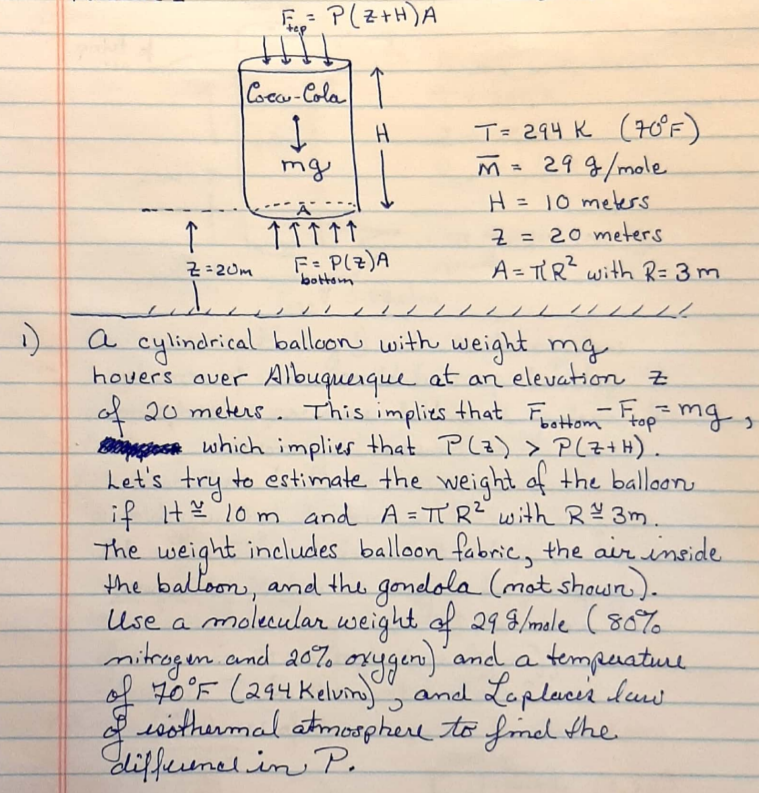 F top = P(Z+H)A
Coca-Cola
mg
H
A
Z = 20m
F bottom = P(Z)A
T = 294 K (70°F)
M̅ = 29 g/mole
H = 10 meters
Z = 20 meters
A = πR² with R = 3 m
1) A cylindrical balloon with weight mg
hovers over Albuquerque at an elevation Z
of 20 meters. This implies that F bottom - F top = mg,
which implies that P(Z) > P(Z+H).
Let's try to estimate the weight of the balloon
if H ≅ 10 m and A = πR² with R ≅ 3m.
The weight includes balloon fabric, the air inside
the balloon, and the gondola (not shown).
Use a molecular weight of 29 g/mole (80%
nitrogen and 20% oxygen) and a temperature
of 70°F (294 Kelvin), and Laplace's law
of isothermal atmosphere to find the
difference in P.